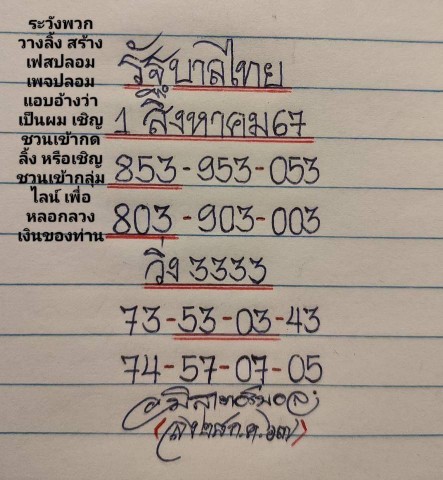 ระวังพวก
วางลิ้ง สร้าง
เฟสปลอม
เพจปลอม
แอบอ้างว่า
เป็นผม เชิญ
ชวนเข้ากด
ลิ้ง หรือเชิญ
ชวนเข้ากลุ่ม
ไลน์ เพื่อ
หลอกลวง
เงินของท่าน
รัฐบาลไทย
1 สิงหาคม67
853-953-053
803-903-003
วิ่ง 3333
73-53-03-43
74-57-07-05